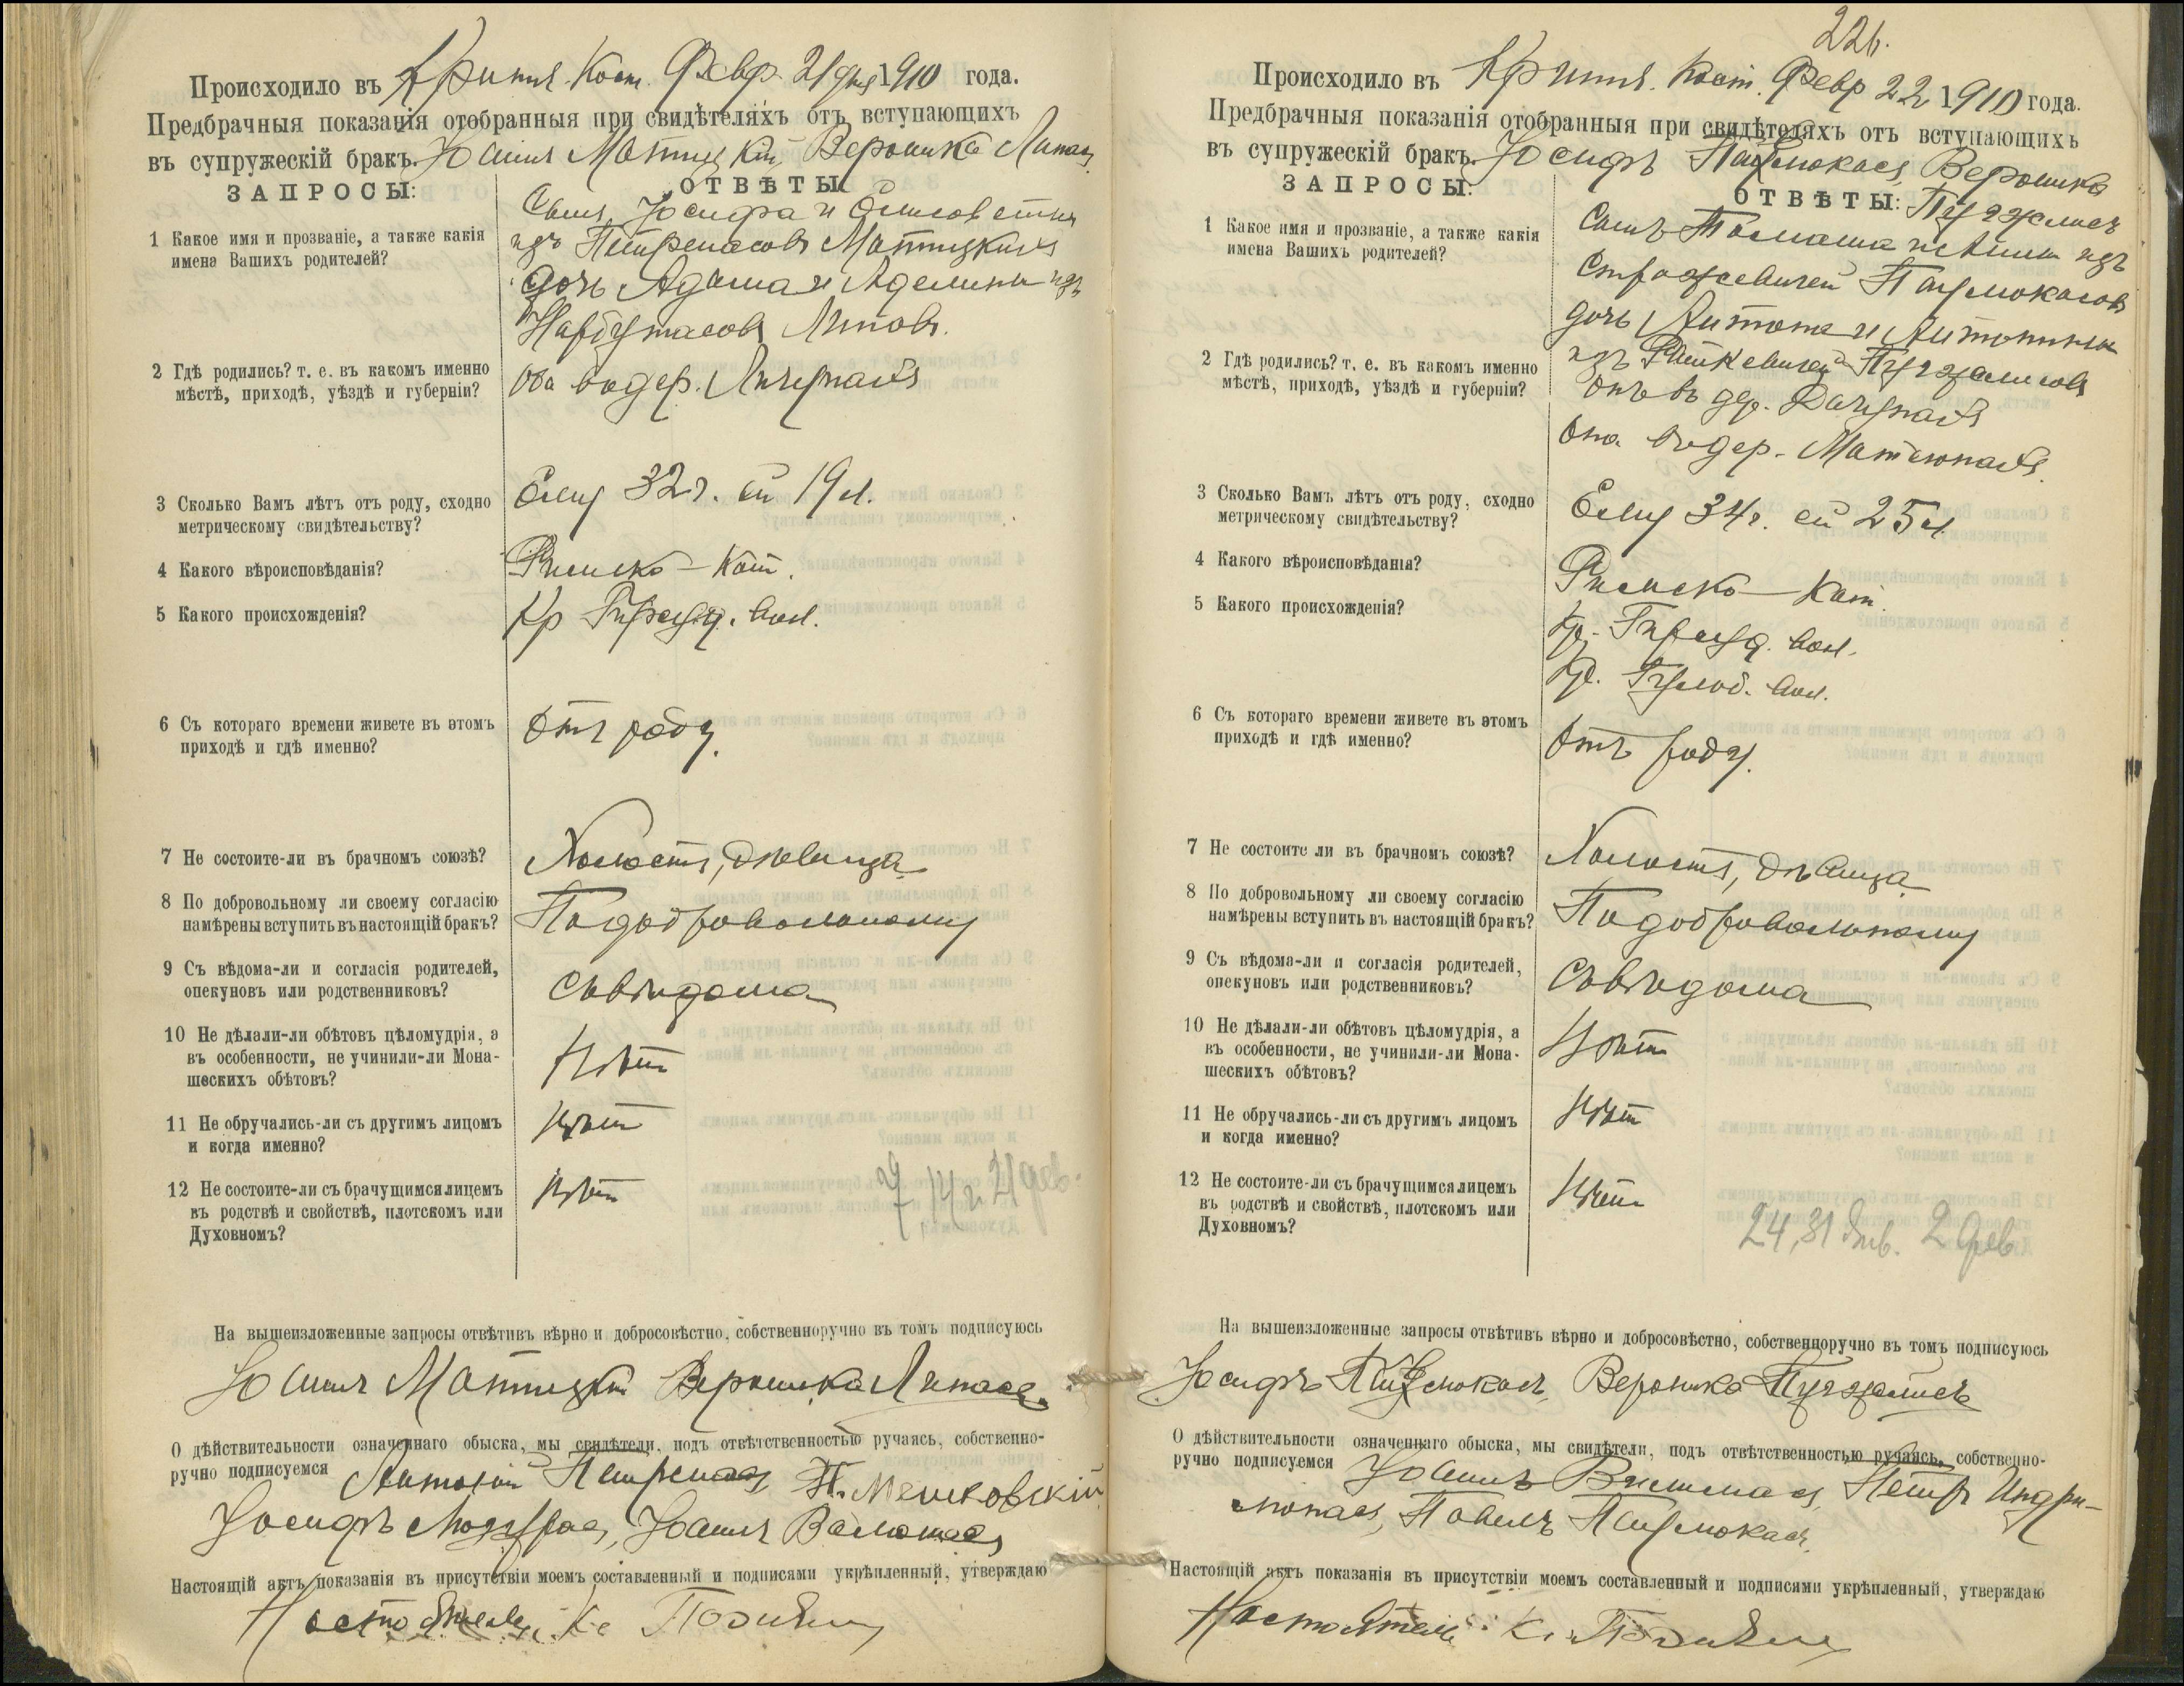 Происходило въ Крипня. Кост. Февр. 21 дня 1910 года.
Предбрачныя показанія отобранныя при свидѣтеляхъ отъ вступающихъ
въ супружескій бракъ. Юаннъ Матицкій, Вероника Липасъ
ЗАПРОСЫ: ОТВѢТЫ
1 Какое имя и прозваніе, а также какія
имена Вашихъ родителей?
Сынъ Юсифа и
изъ Петренасовъ Матицкихъ
дочь Адама и Аделины изъ
Нарбутасовъ Липовъ.
2 Гдѣ родились? т. е. въ какомъ именно
мѣстѣ, приходѣ, уѣздѣ и губерніи?
Оба въ дер.
3 Сколько Вамъ лѣтъ отъ роду, сходно
метрическому свидѣтельству?
Ему 32 г. ей 19 л.
4 Какого вѣроисповѣданія?
Римско-Кат.
5 Какого происхожденія?
Кр. Гируд. вол.
6 Съ котораго времени живете въ этомъ
приходѣ и гдѣ именно?
Отъ роду.
7 Не состоите-ли въ брачномъ союзѣ?
Холостъ, дѣвица
8 По добровольному ли своему согласію
намѣрены вступить въ настоящій бракъ?
По добровольному
9 Съ вѣдома-ли и согласія родителей,
опекуновъ или родственниковъ?
Съ вѣдома
10 Не дѣлали-ли обѣтовъ цѣломудрія, а
въ особенности, не учинили-ли Мона-
шескихъ обѣтовъ?
Нѣтъ
11 Не обручались-ли съ другимъ лицомъ
и когда именно?
Нѣтъ
12 Не состоите-ли съ брачущимся лицемъ
въ родствѣ и свойствѣ, плотскомъ или
Духовномъ?
Нѣтъ
7, 14 и 21 фев.
На вышеизложенные запросы отвѣтивъ вѣрно и добросовѣстно, собственноручно въ томъ подписуюсь
Юаннъ Матицкій Вероника Липасъ
О дѣйствительности означеннаго обыска, мы свидѣтели, подъ отвѣтственностью ручаясь, собственно-
ручно подписуемся Антоній Петренасъ
Юсифъ Юаннъ
Настоящій актъ показанія въ присутствіи моемъ составленный и подписями укрѣпленный, утверждаю
Настоятель К.
226.
Происходило въ Крипня. Кост. Февр 22 1910 года.
Предбрачныя показанія отобранныя при свидѣтеляхъ отъ вступающихъ
въ супружескій бракъ. Юсифъ Вероника
ЗАПРОСЫ: ОТВѢТЫ:
1 Какое имя и прозваніе, а также какія
имена Вашихъ родителей?
Сынъ Томаша и Анны изъ
дочь Антона и Антонины
изъ
2 Гдѣ родились? т. е. въ какомъ именно
мѣстѣ, приходѣ, уѣздѣ и губерніи?
Онъ въ дер.
Она въ дер.
3 Сколько Вамъ лѣтъ отъ роду, сходно
метрическому свидѣтельству?
Ему 34 г. ей 25 л.
4 Какого вѣроисповѣданія?
Римско-Кат.
5 Какого происхожденія?
Кр. Гируд. вол.
Кр. вол.
6 Съ котораго времени живете въ этомъ
приходѣ и гдѣ именно?
Отъ роду.
7 Не состоите ли въ брачномъ союзѣ?
Холостъ, дѣвица
8 По добровольному ли своему согласію
намѣрены вступить въ настоящій бракъ?
По добровольному
9 Съ вѣдома-ли и согласія родителей,
опекуновъ или родственниковъ?
Съ вѣдома
10 Не дѣлали-ли обѣтовъ цѣломудрія, а
въ особенности, не учинили-ли Мона-
шескихъ обѣтовъ?
Нѣтъ
11 Не обручались-ли съ другимъ лицомъ
и когда именно?
Нѣтъ
12 Не состоите-ли съ брачущимся лицемъ
въ родствѣ и свойствѣ, плотскомъ или
Духовномъ?
Нѣтъ
24, 31 Янв. 2 фев
На вышеизложенные запросы отвѣтивъ вѣрно и добросовѣстно, собственноручно въ томъ подписуюсь
Юсифъ Вероника
О дѣйствительности означеннаго обыска, мы свидѣтели, подъ отвѣтственностью ручаясь, собственно-
ручно подписуемся Юаннъ Петръ
Павелъ
Настоящій актъ показанія въ присутствіи моемъ составленный и подписями укрѣпленный, утверждаю
Настоятель К.